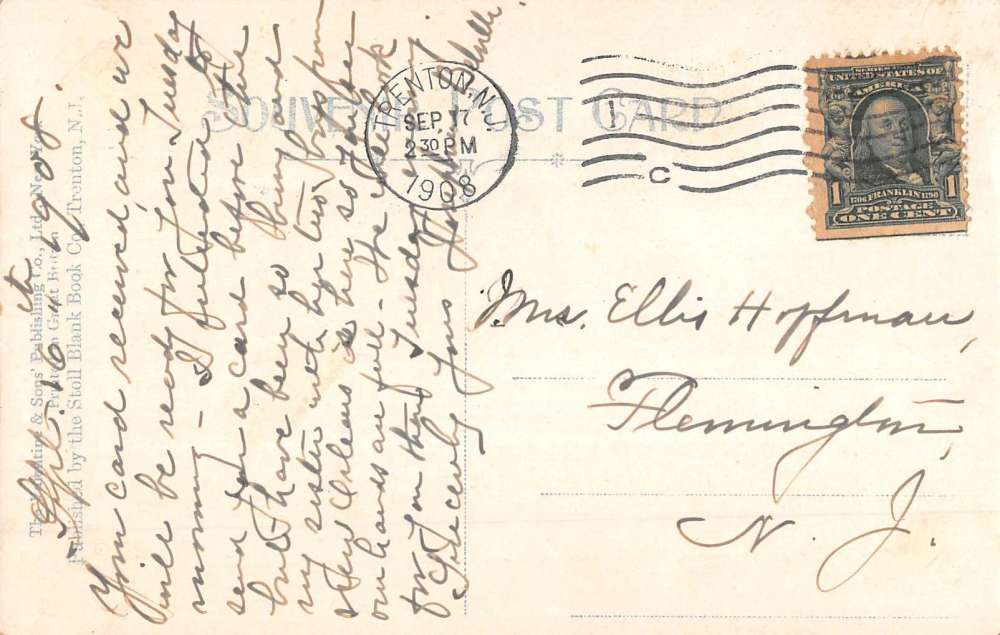 SOUVENIR POST CARD
The Valentine & Sons' Publishing Co., Ltd. New York
Printed in Great Britain
Published by the Stoll Blank Book Co., Trenton, N.J.
TRENTON, N.J.
SEP 17
2 30 PM
1908
1
C
SERIES 1902
UNITED STATES OF
AMERICA
1706 FRANKLIN 1790
POSTAGE
1 1
ONE CENT
Sept. 16th 1908.
Your card received, and we
will be ready for you Tuesday
morning - I intended to
send you a card before this
but have been so busy and
my sister with her two boys from
New Orleans is here so I have
our hands are full - the work
for you there Tuesday
Sincerely Yours
Mrs. Ellis Hoffman,
Flemington,
N. J.